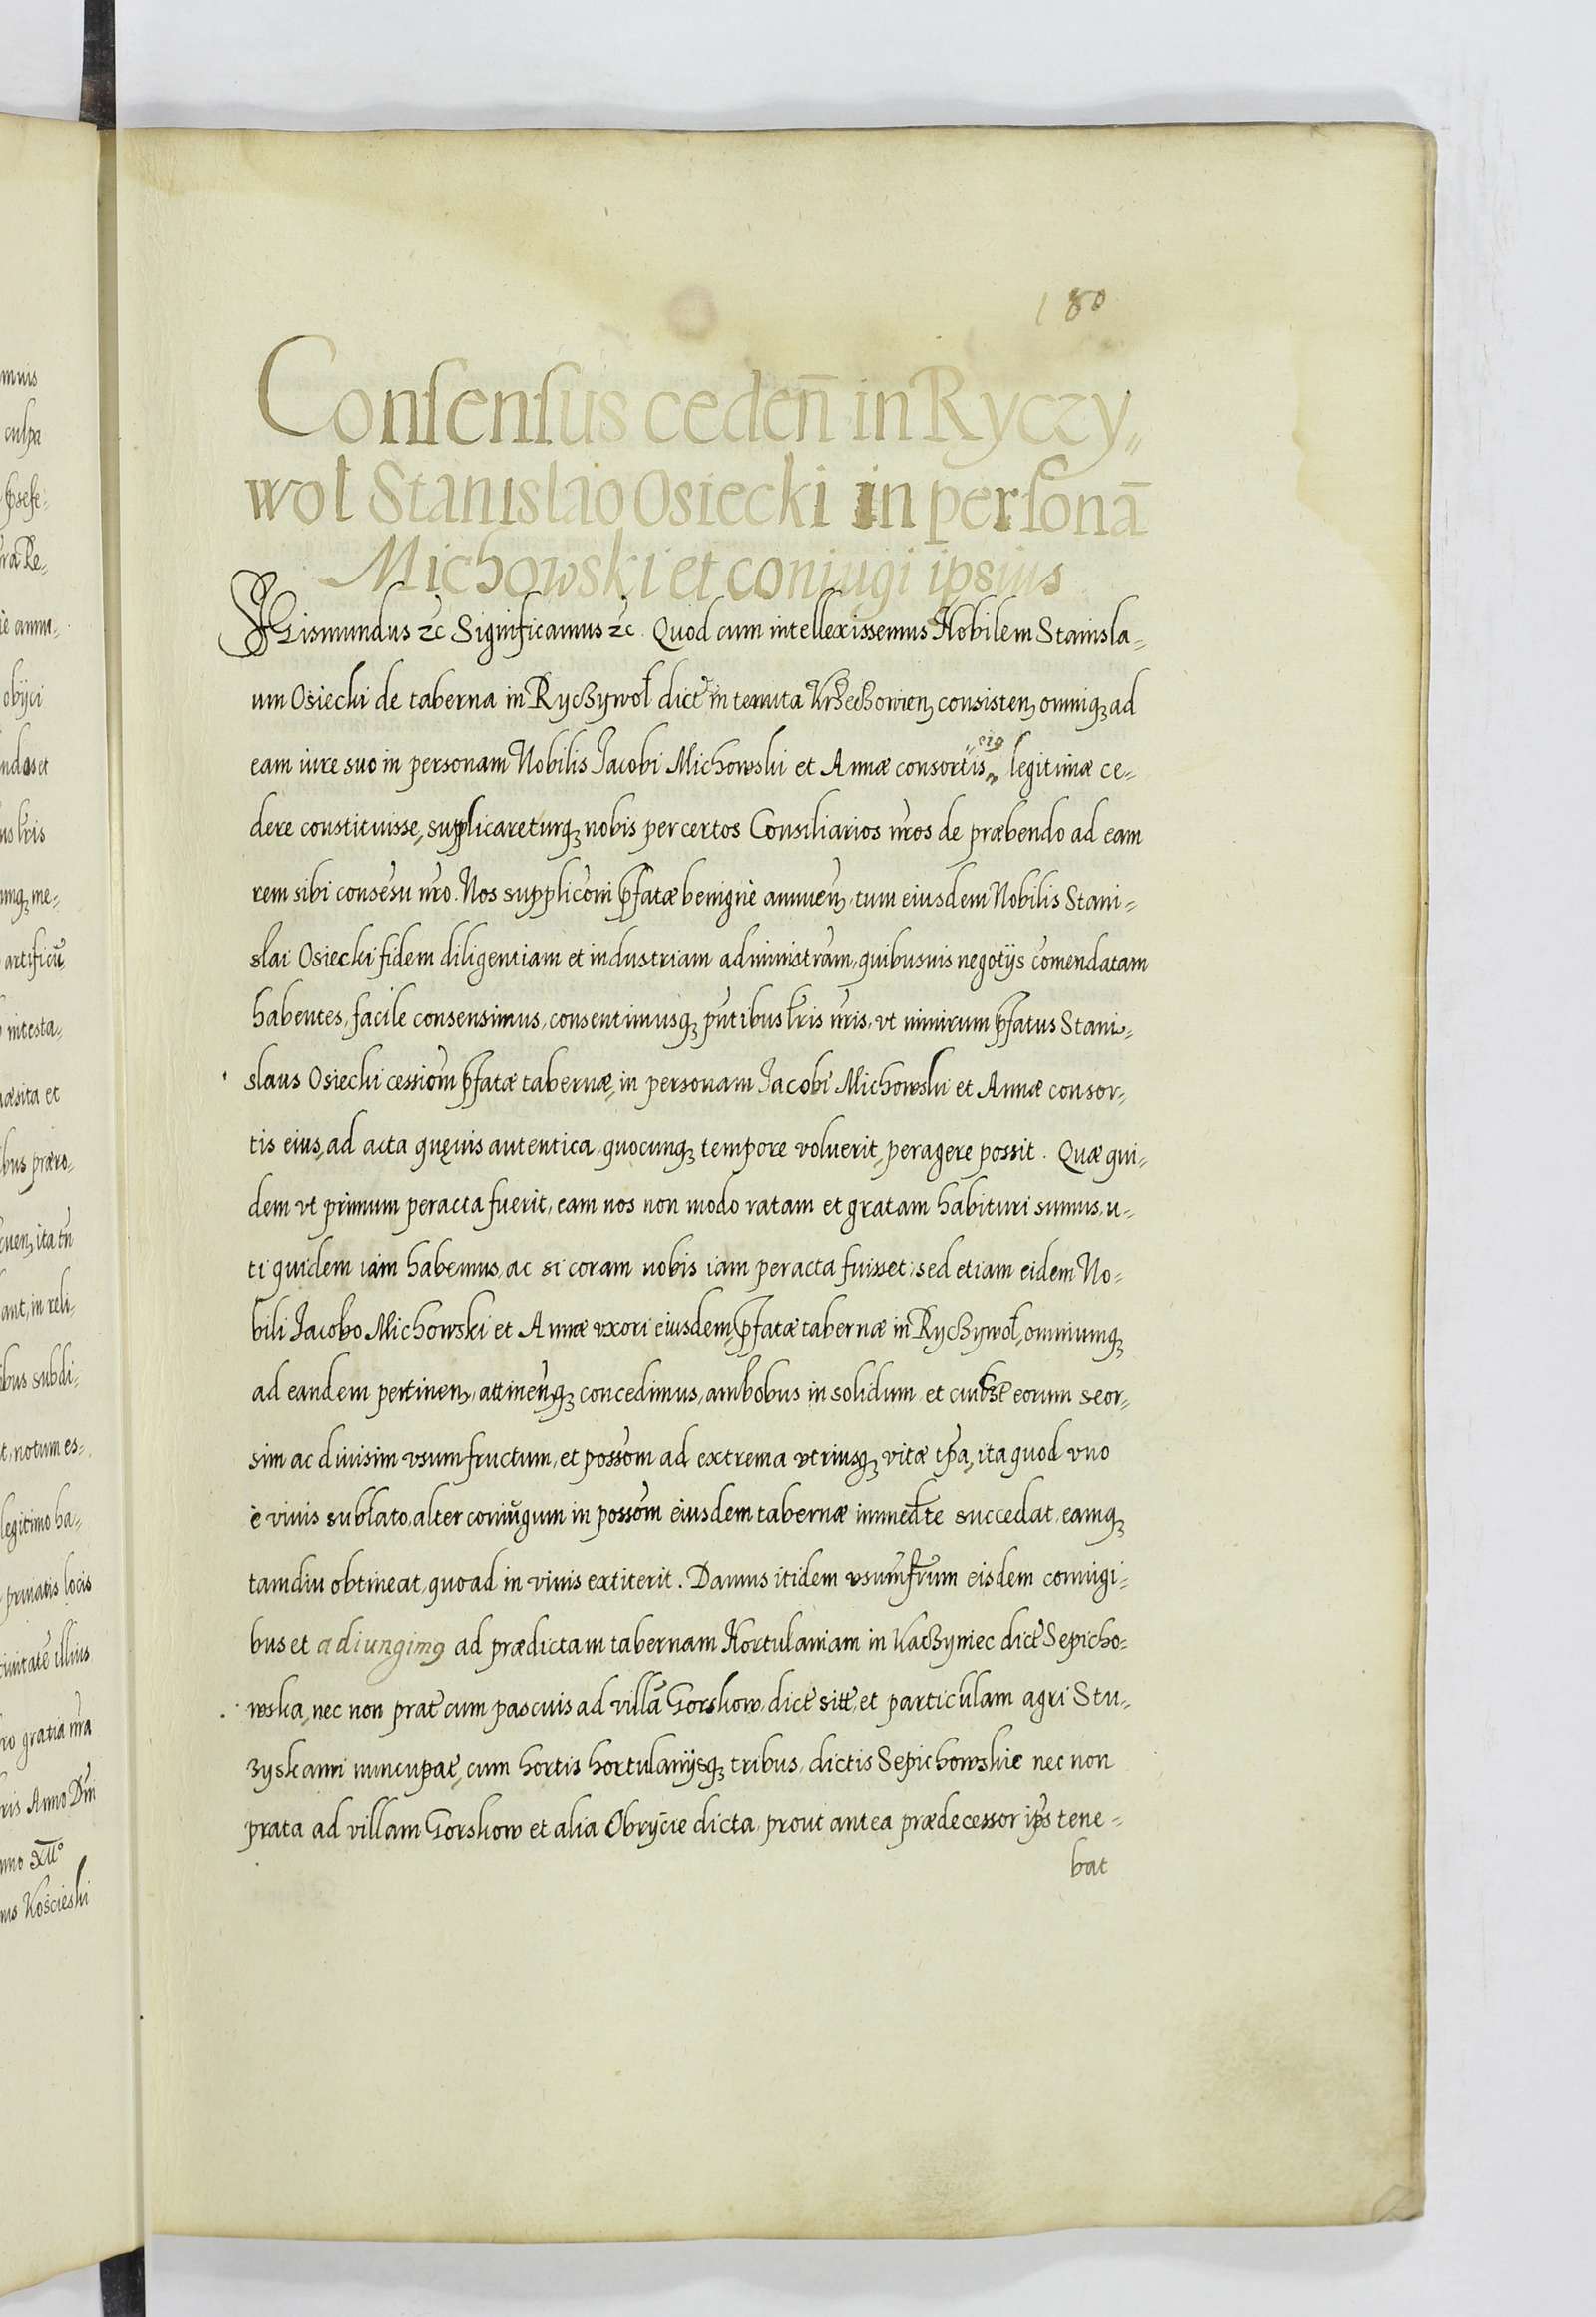 180
Consensus ceden̄ in Ryczy„
wol Stanislao Osiecki in personā
Michowski et coniugi ipsius
SGismundus ꝛc Significamus ꝛc. Quod cum intellexissemus Nobilem Stanisla„
um Osiecki de taberna in Ryczywoł dict̃ in tenuta Krzechowien̄ consisten̄ omniqꝫ ad
eam iure suo in personam Nobilis Jacobi Michowski et Annæ consortis eiꝯ legitimæ ce„
dere constituisse, supplicareturqꝫ nobis per certos Consiliarios nr̃os de præbendo ad eam
rem sibi consẽsu nr̃o. Nos supplicõni p̃fatæ benignè annuen̄, tum eiusdem Nobilis Stani„
slai Osiecki fidem diligentiam et industriam administrãm, quibusuis negotijs com̃endatam
habentes, facile consensimus, consentimusqꝫ pñtibus lr̃is nr̃is, vt nimirum p̃fatus Stani„
slaus Osiecki cessiõm p̃fatæ tabernæ, in personam Jacobi Michowski et Annæ consor„
tis eius, ad acta quęuis autentica, quocunqꝫ tempore voluerit, peragere possit. Quæ qui„
dem vt primum peracta fuerit, eam nos non modo ratam et gratam habituri sumus, u„
ti quidem iam habemus, ac si coram nobis iam peracta fuisset, sed etiam eidem No„
bili Jacobo Michowski et Annæ vxori eiusdem, p̃fatæ tabernæ in Ryczywoł, omniumqꝫ
ad eandem pertinen̄, attinen̄qꝫ concedimus, ambobus in solidum et cuibꝫlt̃ eorum seor„
sim ac diuisim vsumfructum, et possõm ad extrema vtriusqꝫ vitæ tp̃a, ita quod vno
è viuis sublato, alter coniugum in possõm eiusdem tabernæ immedt̃e succedat, eamqꝫ
tamdiu obtineat, quoad in viuis extiterit. Damus itidem vsumfr̃um eisdem coniugi„
bus et adiungimꝯ ad prædictam tabernam Hortulaniam in Kaczyniec dict̃ Sepicho„
wska, nec non prat̃ cum pascuis ad villã Gorskow, dict̃ sitt̃, et particulam agri Stu„
zyskami nuncupat̃, cum hortis hortulanijsqꝫ tribus, dictis Sepichowskie nec non
prata ad villam Gorskow et alia Obrycie dicta, prout antea prædecessor ip̃s tene„
bat